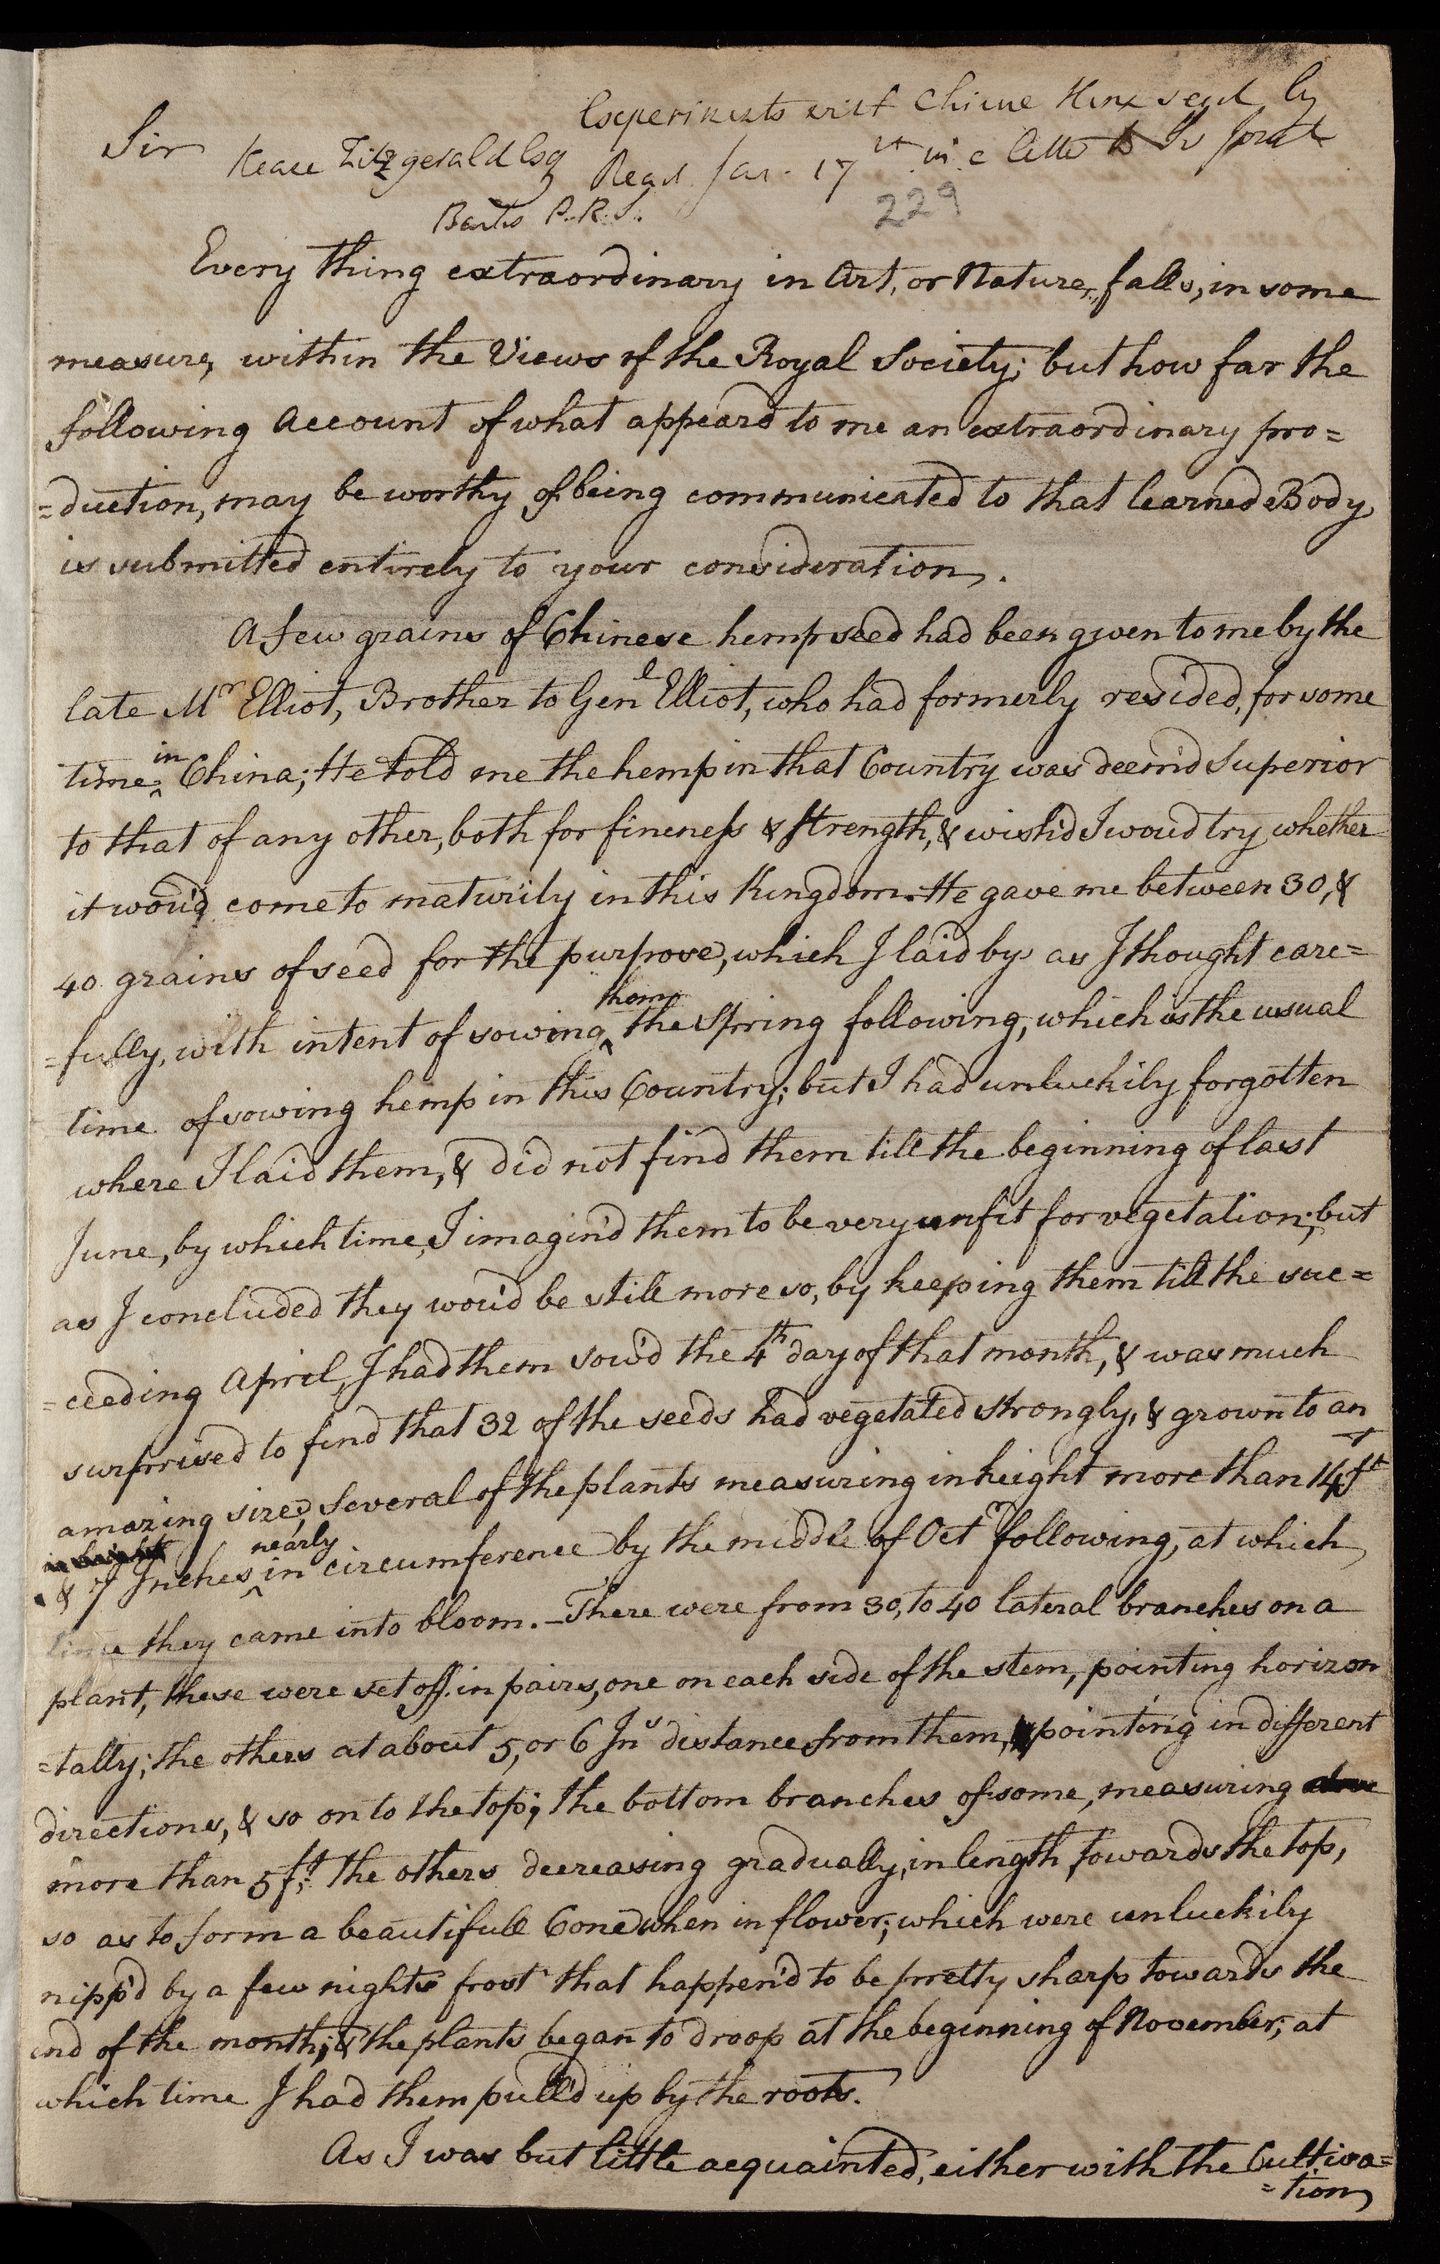 Experiments with Chinese Hemp seed by
Sir Keane Fitzgerald Esq Read Jan. 17 in a letter to Sr Joseph
229
Banks P.R.S.
Every thing extraordinary in Art, or Nature, falls, in some
measure, within the Views of the Royal Society; but how far the
following Account of what appeard to me an extraordinary pro=
=duction, may be worthy of being communicated to that learned Body,
is submitted entirely to your consideration.
A few grains of Chinese hempseed had been given to me by the
late Mr Elliot, Brother to Genl Elliot, who had formerly resided, for some
time in China; He told me the hemp in that Country was deem'd Superior
to that of any other, both for fineness & Strength, & wish'd I woud try whether
it wou'd come to maturity in this Kingdom. He gave me between 30, &
40 grains of seed for the purpose, which I laid by as I thought care=
=fully, with intent of sowing them the Spring following, which is the usual
time of sowing hemp in this Country; but I had unluckily forgotten
where I laid them, & did not find them till the beginning of last
June, by which time, I imagin'd them to be very unfit for vegetation; but
as I concluded they wou'd be still more so, by keeping them till the suc=
=ceeding April, I had them sow'd the 4th day of that month, & was much
surprised to find that 32 of the seeds had vegetated strongly, & grown to an
amazing size, Several of the plants measuring in height more than 14 ft
in height
& 7 Inches nearly in circumference by the middle of Octr following, at which
time they came into bloom. — There were from 30, to 40 lateral branches on a
plant, these were set off in pairs, one on each side of the stem, pointing horizon
=tally; the others at about 5, or 6 Ins distance from them, pointing in different
directions, & so on to the top; the bottom branches of some, measuring
more than 5 ft; the others decreasing gradually, in length, towards the top,
so as to form a beautifull Cone when in flower; which were unluckily
nipp'd by a few nights frost that happen'd to be pretty sharp towards the
end of the month; & the plants began to droop at the beginning of November; at
which time I had them pull'd up by the roots.
As I was but little acquainted, either with the Cultiva=
=tion,